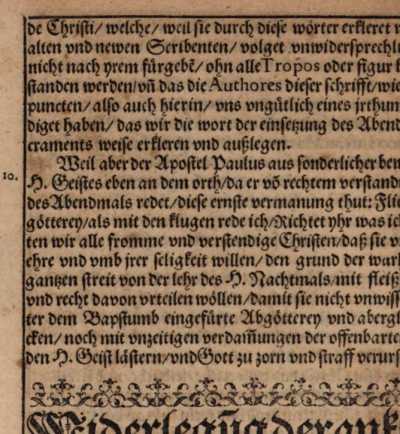 de Christi/ welche/ weil sie durch diese wörter erkleret
alten vnd newen Scribenten/ volget vnwidersprechl
nicht nach yrem fürgebē/ ohn alle Tropos oder figur
standen werden/ vñ das die Authores dieser schrifft/ wie
puncten/ also auch hierin/ vns vngütlich eines jrthum
diget haben/ das wir die wort der einsetzung des Abend
craments weise erkleren vnd außlegen.
10. Weil aber der Apostel Paulus aus sonderlicher be
H. Geistes eben an dem orth/ da er võ rechtem verstand
des Abendmals redet/ diese ernste vermanung thut: Flie
götterey/ als mit den klugen rede ich/ Richtet yhr was ich
ten wir alle fromme vnd verstendige Christen/ daß sie
ehre vnd vmb jrer seligkeit willen/ den grund der war
gantzen streit von der lehr des H. Nachtmals/ mit fleiß
vnd recht davon vrteilen wöllen/ damit sie nicht vnwiss
ter dem Bapstumb eingefürte Abgötterey vnd abergl
cken/ noch mit vnzeitigen verdam̃ungen der offenbarte
den H. Geist lästern/ vnd Gott zu zorn vnd straff verurs
Widerlegũg der ank